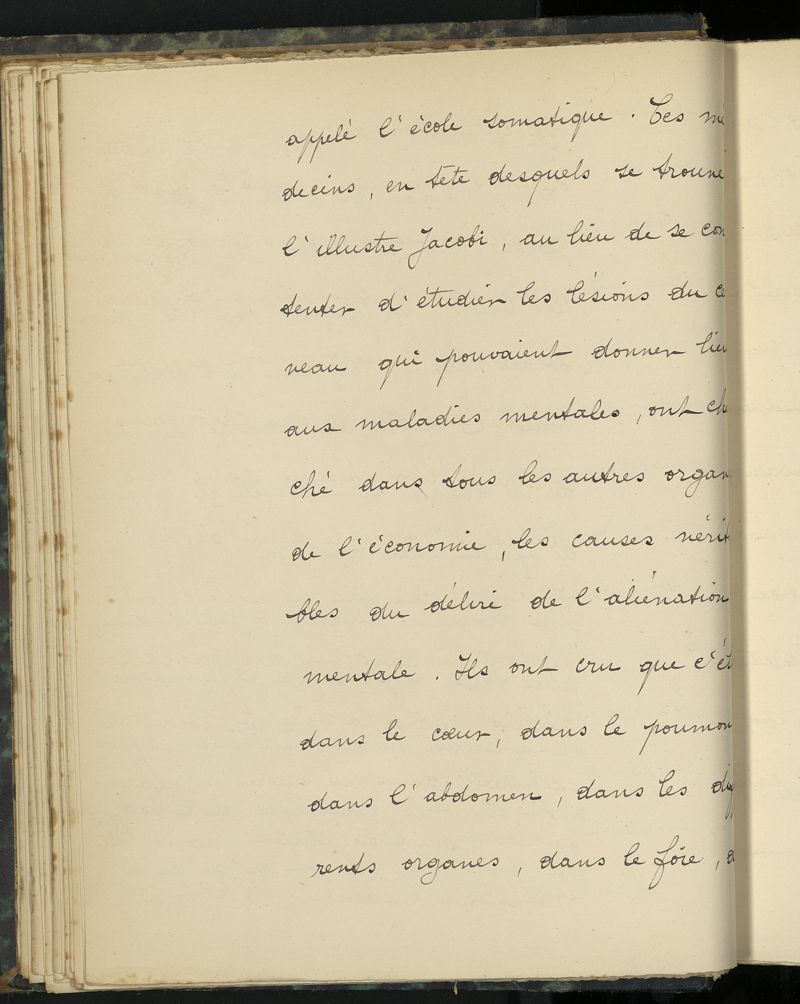 appelé l'école somatique. Ces mé
decins, en tête desquels se trouve
l'illustre Jacobi, au lieu de se con
tenter d'étudier les lésions du ce
veau qui pouvaient donner lieu
aux maladies mentales, ont che
ché dans tous les autres organ
de l'économie, les causes vérit
bles du délire de l'aliénation
mentale. Ils ont cru que c'ét
dans le cœur, dans le poumon
dans l'abdomen, dans les dif
rents organes, dans le foie, d